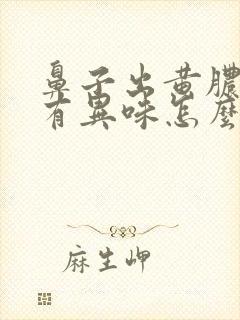 鼻子出黄膿
有異味怎麼
麻生岬